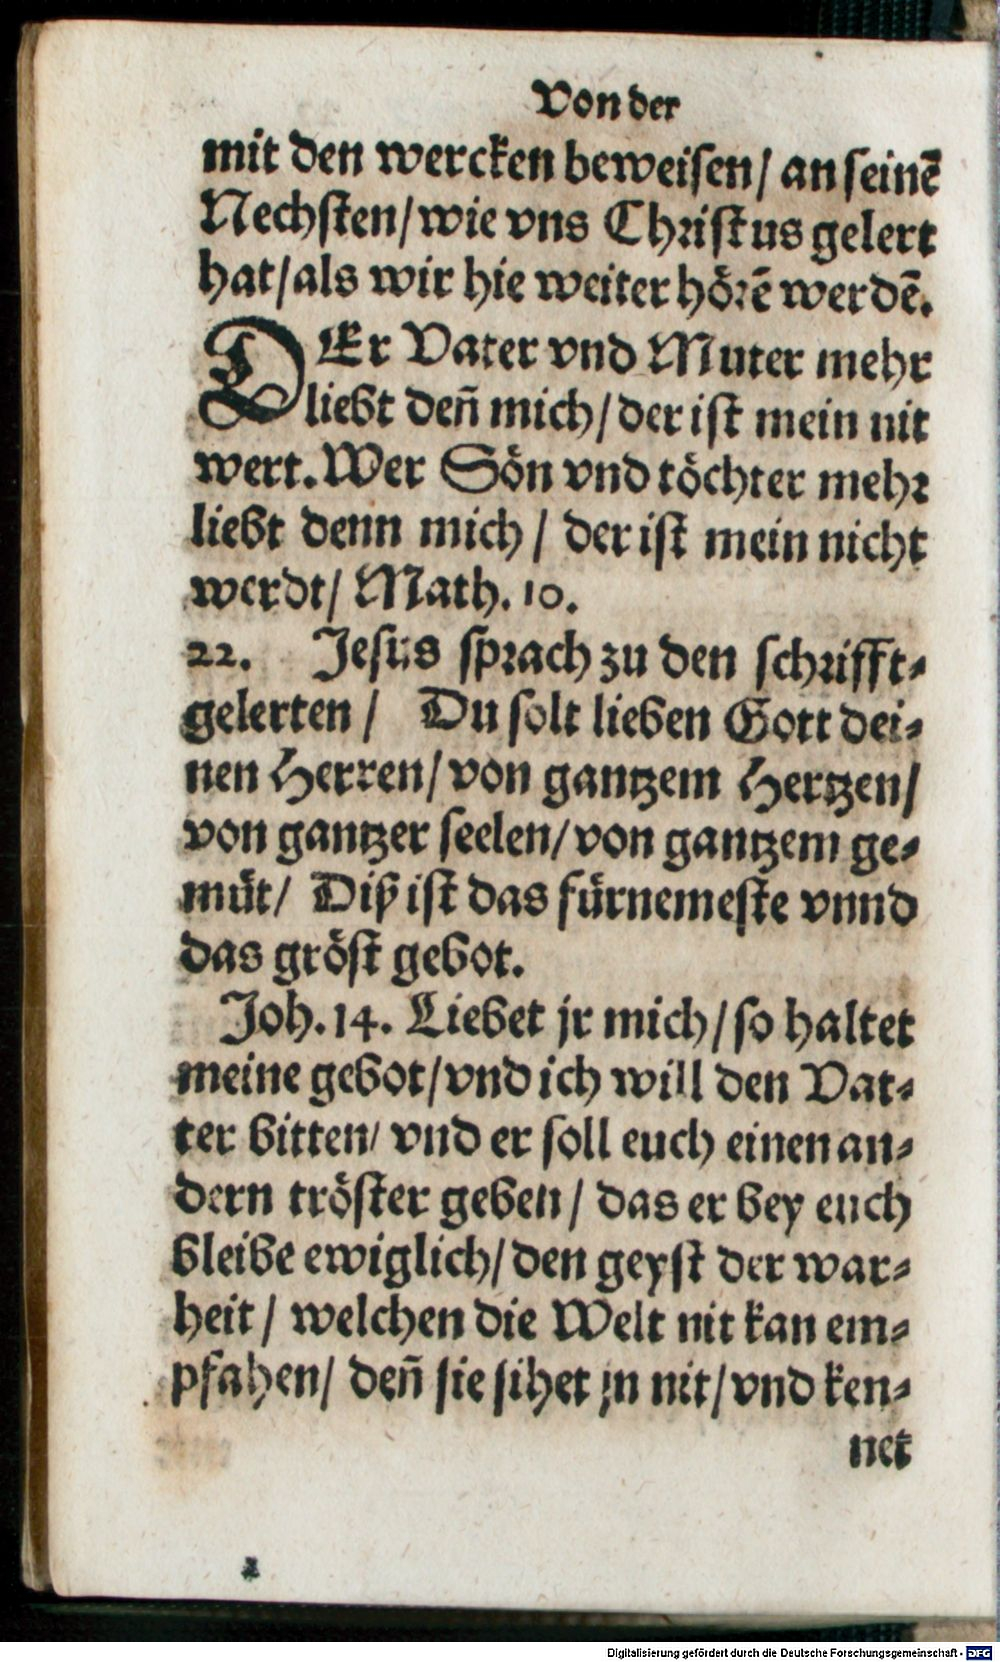 Von der
mit den wercken beweisen/ an seinē
Nechsten/ wie vns Christus gelert
hat/ als wir hie weiter hörē werdē.
DEr Vater vnd Muter mehr
liebt deñ mich/ der ist mein nit
wert. Wer Sön vnd töchter mehr
liebt denn mich/ der ist mein nicht
werdt/ Math. 10.
22. Jesus sprach zu den schrifft-
gelerten/ Du solt lieben Gott dei-
nen Herren/ von gantzem Hertzen/
von gantzer seelen/ von gantzem ge-
müt/ Diß ist das fürnemeste vnnd
das gröst gebot.
Joh. 14. Liebet jr mich/ so haltet
meine gebot/ vnd ich will den Vat-
ter bitten/ vnd er soll euch einen an-
dern tröster geben/ das er bey euch
bleibe ewiglich/ den geyst der war-
heit/ welchen die Welt nit kan em-
pfahen/ deñ sie sihet jn nit/ vnd ken-
net
Digitalisierung gefördert durch die Deutsche Forschungsgemeinschaft - DFG